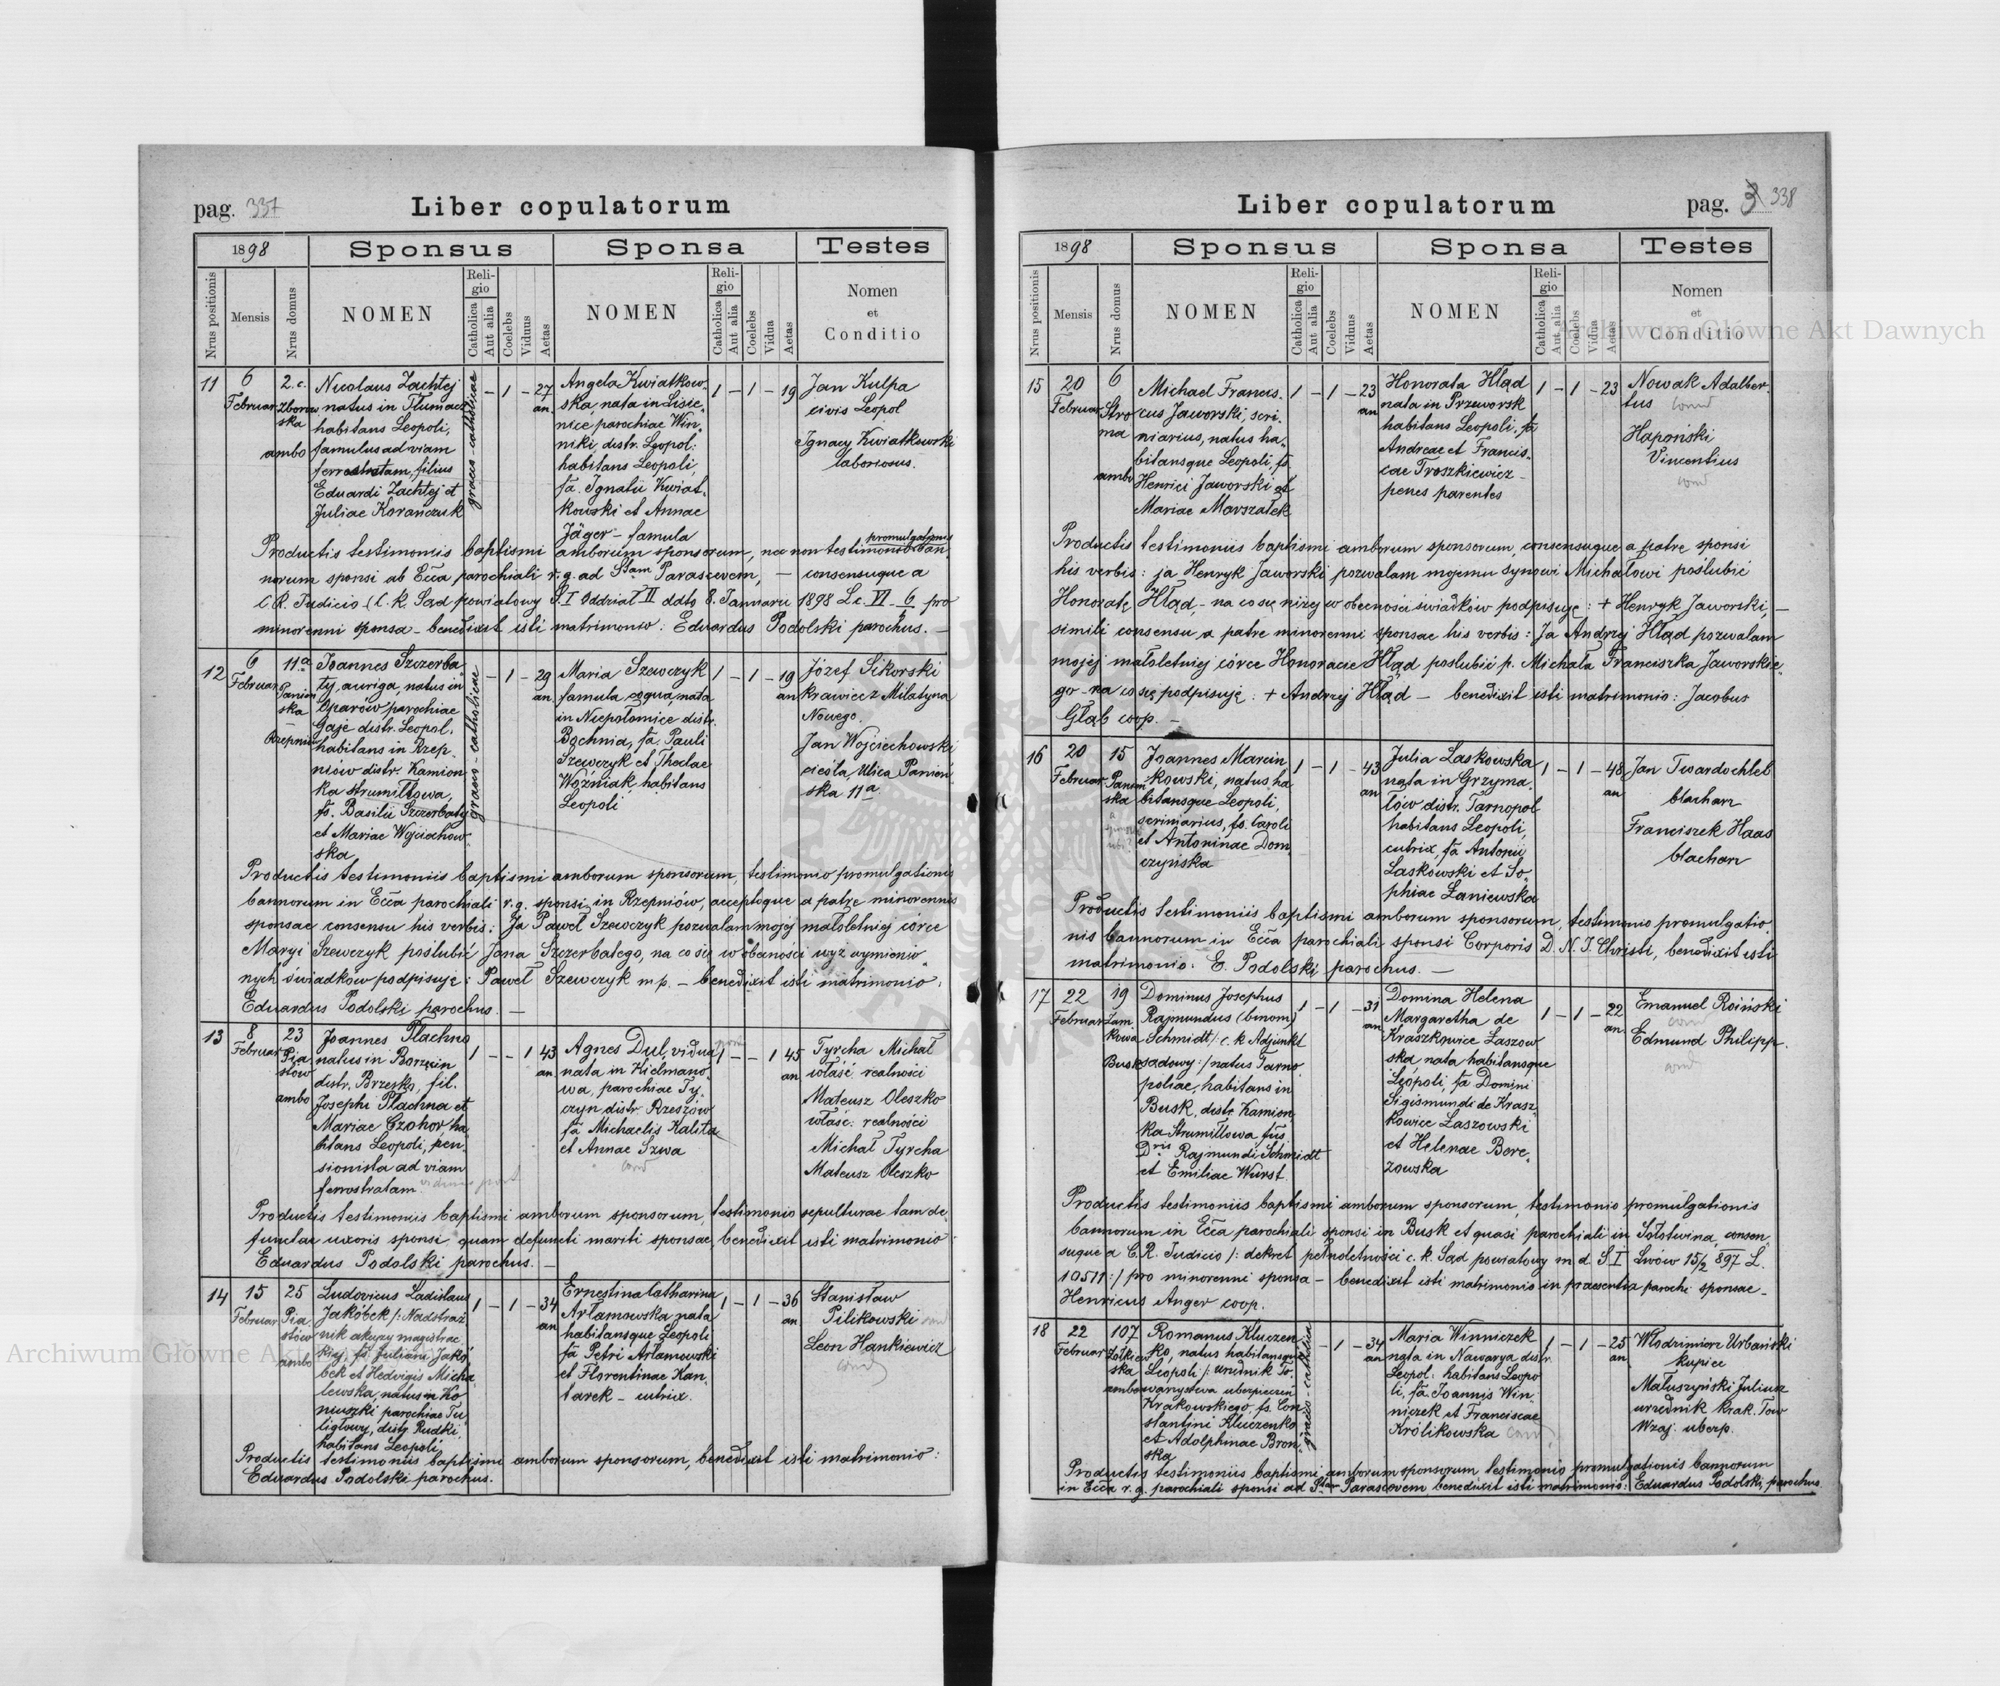 pag. 337
Liber copulatorum
1898
Sponsus
Sponsa
Testes
Nrus positionis
Mensis
Nrus domus
NOMEN
Religio
Catholica
Aut alia
Coelebs
Viduus
Aetas
NOMEN
Religio
Catholica
Aut alia
Coelebs
Vidua
Aetas
Nomen
et
Conditio
11
6
Februar
2.c.
Zborow
ska
ambo
Nicolaus Zachtej
natus in Tłumacz
habitans Leopoli,
famulus ad viam
ferrostratam, filius
Eduardi Zachtej et
Juliae Korańczuk
graeco-catholicae
– 1 – 27
an.
Angela Kwiatkow-
ska, nata in Lisie-
nice parochiae Win-
niki, distr. Leopol:
habitans Leopoli,
fa. Ignatii Kwiat-
kowski et Annae
Jäger – famula
1 – 1 – 19
Jan Kulpa
civis Leopol
Ignacy Kwiatkowski
laboriosus.
Productis testimoniis baptismi amborum sponsorum, nec non testimonio promulgationis ban
norum sponsi ab Ecca parochiali r.g. ad Stam Parascevem, – consensuque a
C.R. Judicio (C.k. Sąd powiatowy S.I Oddział II ddto 8. Januarii 1898 L.c. VI 6 pro
minorenni sponsa – benedixit isti matrimonio: Eduardus Podolski parochus. –
12
6
Februar
11a
Panień
ska
–
Rzepniów
Joannes Szczerba
ty, auriga, natus in
Oparów parochiae
Gaje distr. Leopol.
habitans in Rzep-
niów distr. Kamion
ka strumiłłowa,
fs. Basilii Szczerbaty
et Mariae Wojciechow-
ska
graeco-catholicae
– 1 – 29
an
Maria Szewczyk
famula cogua, nata
in Niepołomice distr.
Bochnia, fa. Pauli
Szewczyk et Theclae
Woźniak, habitans
Leopoli
1 – 1 – 19
an
Józef Sikorski
krawiec z Milatyna
Nowego.
Jan Wojciechowski
cieśla, Ulica Panień
ska 11a
Productis testimoniis baptismi amborum sponsorum, testimonio promulgationis
bannorum in Ecca parochiali r.g. sponsi in Rzepniów, acceptoque a patre minorennis
sponsae consensu his verbis: Ja Paweł Szewczyk pozwalam mojej małoletniej córce
Maryi Szewczyk poślubić Jana Szczerbatego, na co się w obecności wyż wymienio-
nych świadków podpisuję: Paweł Szewczyk m.p. – benedixit isti matrimonio:
Eduardus Podolski parochus. –
13
8
Februar
23
Pia
stów
ambo
Joannes Płachno
natus in Borzęcin
distr. Brzesko, fil.
Josephi Płachna et
Mariae Czohor ha
bitans Leopoli, pen-
sionista ad viam
ferrostratam
1 – – 1 43
an
Agnes Dul, vidua
nata in Kielnano-
wa, parochiae Ty-
czyn distr. Rzeszów
fa Michaelis Kalita
et Annae Szwa
1 – – 1 45
an
Tyrcha Michał
właśc realności
Mateusz Oleszko
właśc: realności
Michał Tyrcha
Mateusz Oleszko
Productis testimoniis baptismi amborum sponsorum, testimonio sepulturae tam de-
functae uxoris sponsi quam defuncti mariti sponsae, benedixit isti matrimonio
Eduardus Podolski parochus. –
14
15
Februar
25
Pia
stów
ambo
Ludovicus Ladislaus
Jakóbek /: Nadstraż
nik akcyzy magistrac
kiej, fs. Juliani Jakó
bek et Hedvigis Micha
lewska, natus in Ko
niuszki parochiae Tu
ligłowy, distr. Rudki,
habitans Leopoli
1 – 1 – 34
an
Ernestina Catharina
Artamowska nata
habitansque Leopoli
fa Petri Artamowski
et Florentinae Kan-
tarek – cutrix.
1 – 1 – 36
an
Stanisław
Pilikowski
Leon Hankiewicz
Productis testimoniis baptismi amborum sponsorum, benedixit isti matrimonio:
Eduardus Podolski parochus.
Liber copulatorum
pag. 3 338
1898
Sponsus
Sponsa
Testes
Nrus positionis
Mensis
Nrus domus
NOMEN
Religio
Catholica
Aut alia
Coelebs
Viduus
Aetas
NOMEN
Religio
Catholica
Aut alia
Coelebs
Vidua
Aetas
Nomen
et
Conditio
15
20
Februar
6
Stro
ma
ambo
Michael Francis-
cus Jaworski, scri-
niarius, natus ha-
bitansque Leopoli, fs.
Henrici Jaworski et
Mariae Marszałek
1 – 1 – 23
an
Honorata Hląd
nata in Przeworsk
habitans Leopoli, fa
Andreae et Francis-
cae Troszkiewicz –
penes parentes
1 – 1 – 23
Nowak Adalber-
tus
Haponski
Vincentius
Productis testimoniis baptismi amborum sponsorum, consensuque a patre sponsi
his verbis: ja Henryk Jaworski pozwalam mojemu synowi Michałowi poślubić
Honoratę Hląd, – na co się niżej w obecności świadków podpisuję: + Henryk Jaworski, –
simili consensu a patre minorenni sponsae his verbis: Ja Andrzej Hląd pozwalam
mojej małoletniej córce Honoracie Hląd poślubić p. Michała Franciszka Jaworskie-
go – na co się podpisuję: + Andrzej Hląd – benedixit isti matrimonio: Jacobus
Głąb coop. –
16
20
Februar
15
Panień
ska
Joannes Marcin
kowski, natus ha
bitansque Leopoli,
scriniarius, fs. Caroli
et Antoninae Dom
czyńska
1 – 1 – 43
an
Julia Laskowska
nata in Grzyma-
łów distr. Tarnopol
habitans Leopoli,
cutrix, fa Antonii
Laskowski et So-
phiae Łaniewska
1 – 1 – 48
an
Jan Twardochleb
blacharz
Franciszek Haas
blacharz
Productis testimoniis baptismi amborum sponsorum, testimonio promulgatio
nis bannorum in Ecca parochiali sponsi Corporis D.N.J. Christi, benedixit isti
matrimonio: E. Podolski parochus. –
17
22
Februar
19
Zam
kowa
Busk
Dominus Josephus
Rajmundus (binom)
Schmidt /: c.k. Adjunkt
sadowy :/ natus Tarno
poliae, habitans in
Busk, distr. Kamion
ka Strumiłłowa, fius
Dni Rajmundi Schmidt
et Emiliae Wurst.
1 – 1 – 31
an
Domina Helena
Margaretha de
Kraszkowice Laszow
ska, nata habitansque
Leopoli, fa Domini
Sigismundi de Krasz-
kowice Laszowski
et Helenae Bore-
zowska
1 – 1 – 22
an
Emanuel Roiński
Edmund Philipp.
Productis testimoniis baptismi amborum sponsorum, testimonio promulgationis
bannorum in Ecca parochiali sponsi in Busk et quasi parochiali in Sołotwina, consen-
suque a C.R. Judicio /: dekret pełnoletności c.k. Sąd powiatowy m d S.I Lwów 15/2 897 L.
10511:/ pro minorenni sponsa – benedixit isti matrimonio in praesentia parochi sponsae –
Henricus Anger coop.
18
22
Februar
107
Żółkiew
ska
ambo
Romanus Kluczen
ko, natus habitansque
Leopoli /: urednik To-
warzystwa ubezpieczeń
Krakowskiego, fs. Con
stantini Kluczenko
et Adolphinae Broń
ska
graeco-catholica
– 1 – 34
an
Maria Winniczek
nata in Nawarya distr.
Leopol: habitans Leopo
li, fa Joannis Win-
niczek et Franciscae
Królikowska
1 – 1 – 25
an
Włodzimierz Urbański
kupiec
Małuszyński Juliusz
urzednik Krak. Tow
Wzaj. ubezp.
Productis testimoniis baptismi amborum sponsorum testimonio promulgationis bannorum
in Ecca r.g. parochiali sponsi ad Stam Parascevem benedixit isti matrimonio: Eduardus Podolski, parochus.
Archiwum Główne Akt Dawnych